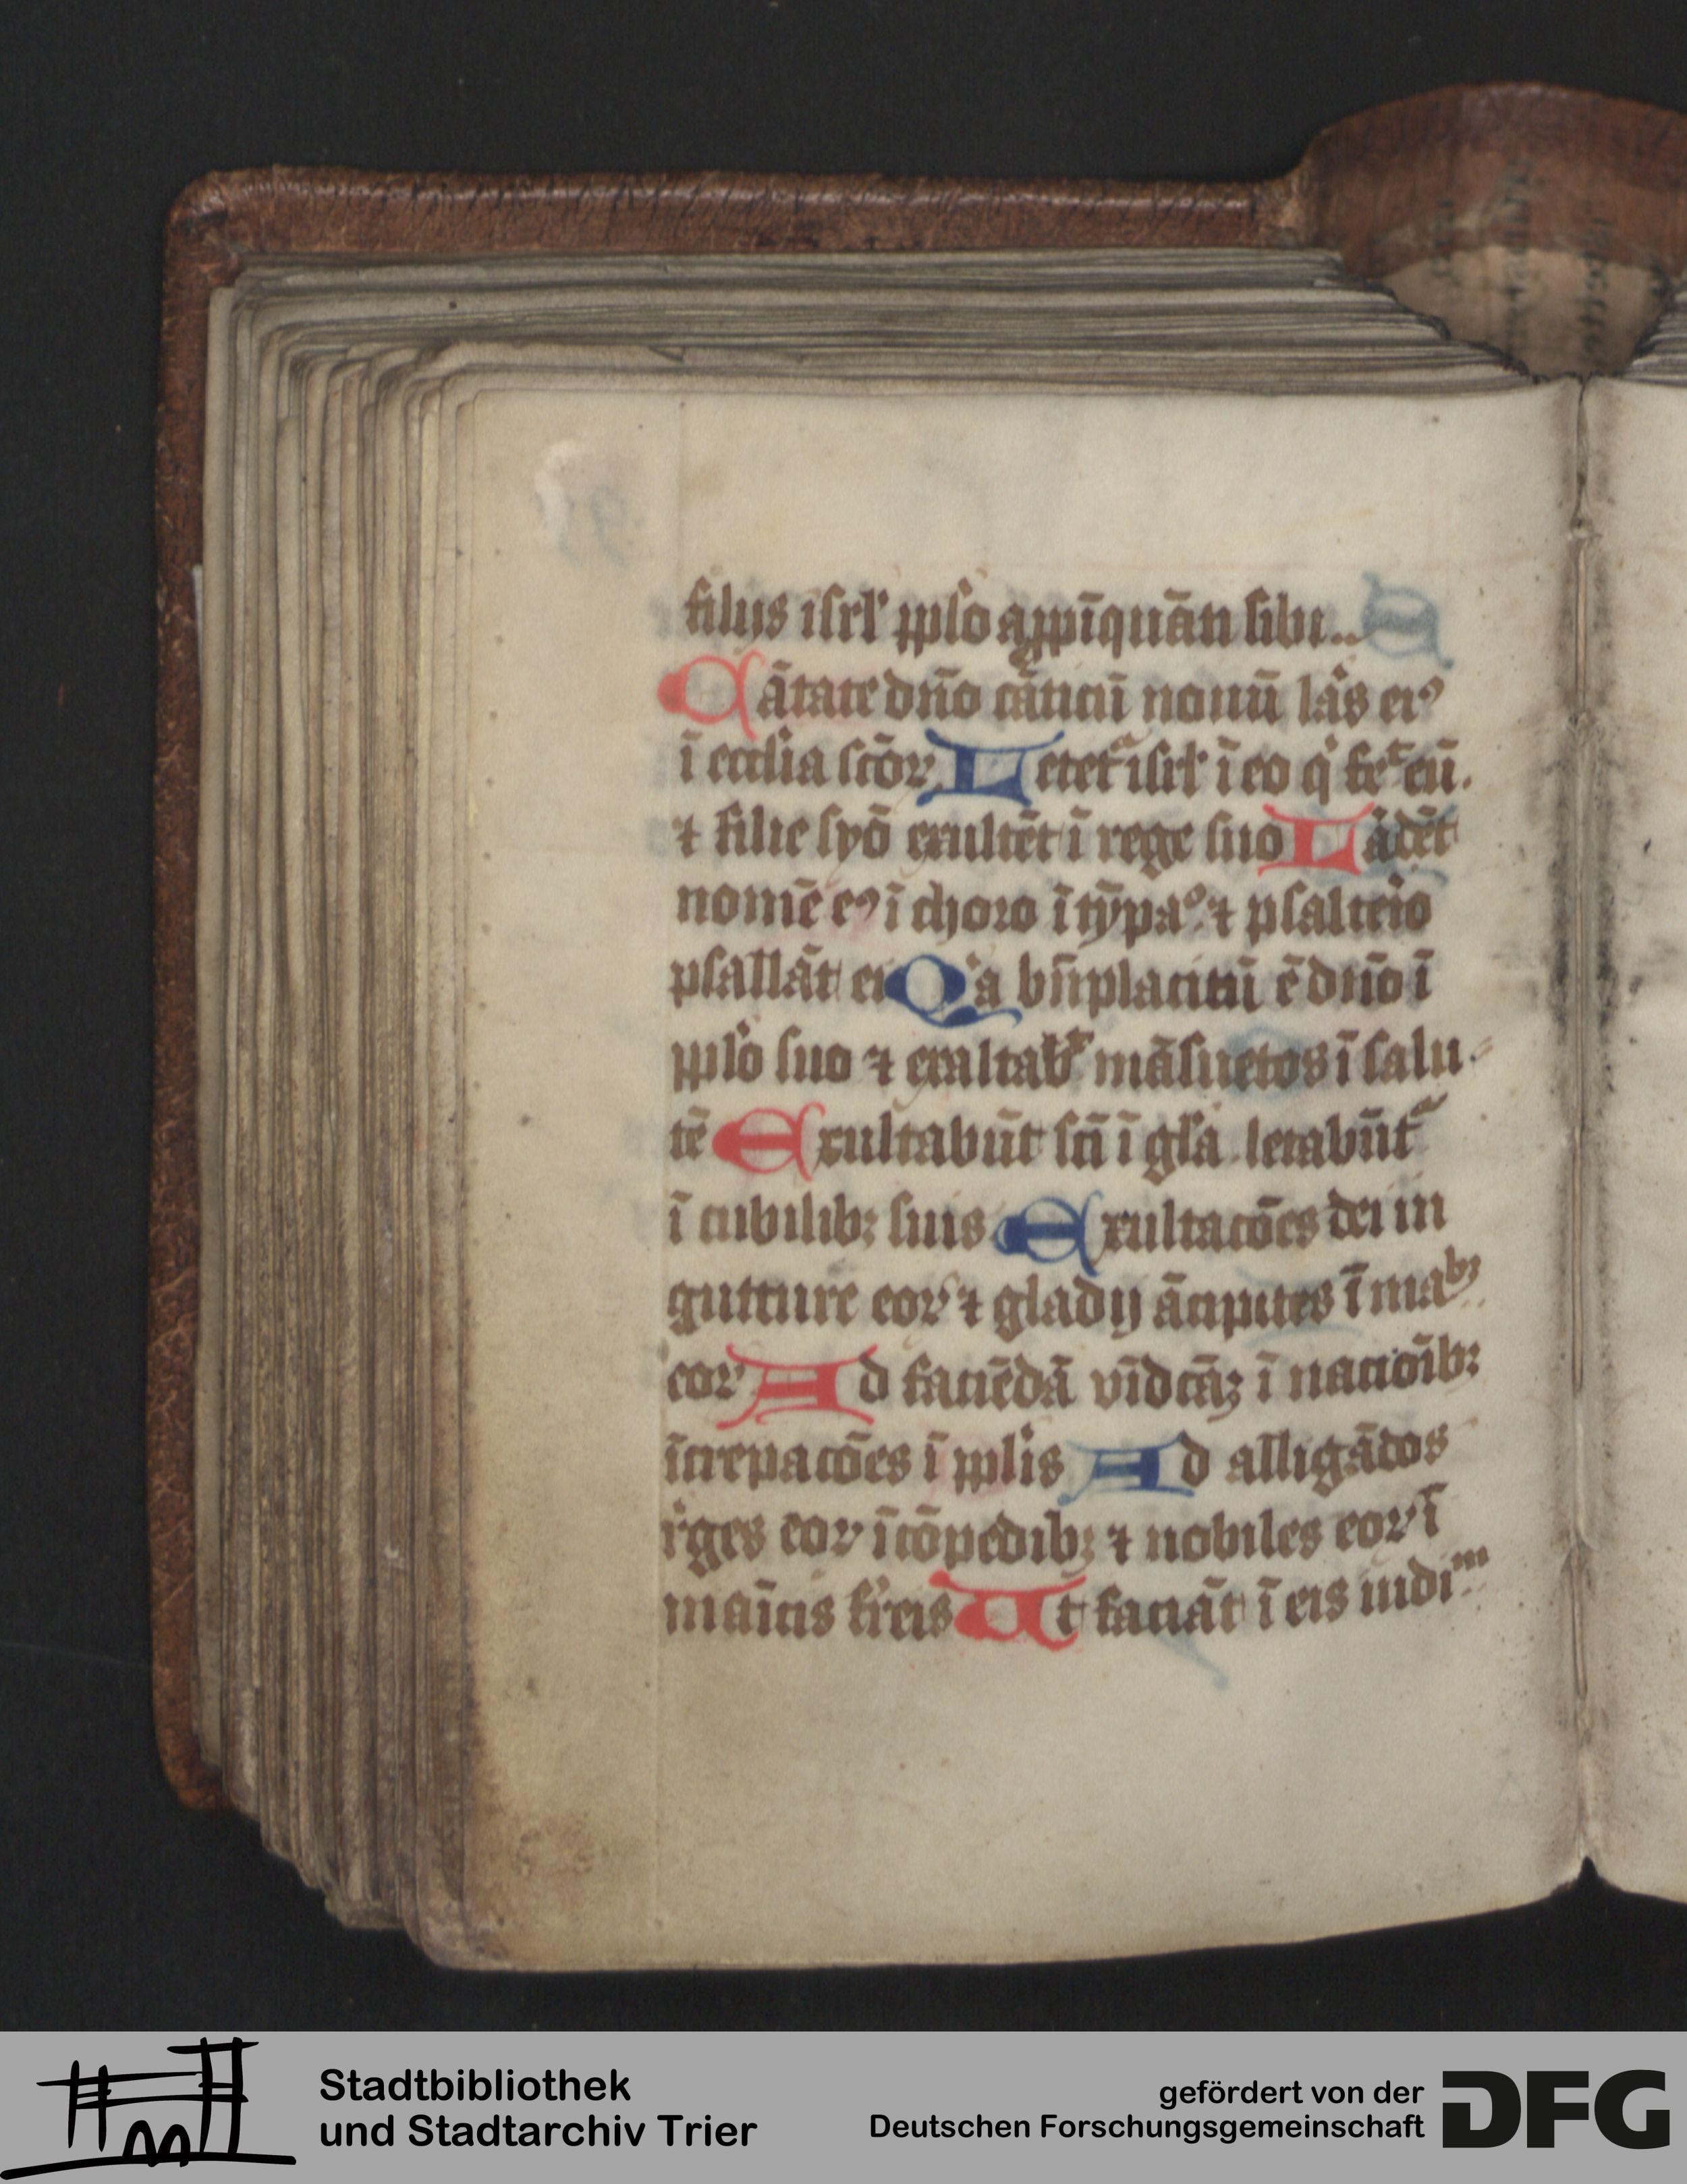 filijs isrl' pplo appīquāti sibi..
Cātate dño cāticū nouū laˢ eiꝰ
ī ecclia scōꝝ Letet᷑ isrl' ī eo q' fecͭ eū.
⁊ filie syō exultēt ī rege suo Laudēt
nomē eꝰ ī choro ī tȳpaᵒ ⁊ psaltīo
psallāt ei Qͥa bñplacitū ē dño ī
pplo suo ⁊ exaltab᷑ māsuetos ī salu-
tē Exultabūt scī ī gla letabūt᷑
ī cubilibꝫ suis Exultacōes dei in
gutture eoꝝ ⁊ gladij ācipites ī maᵇꝫ
eoꝝ Ad faciēdā vīdcāꝫ ī nacioībꝫ
īcrepacōes ī pplis Ad alligādos
rͤges eoꝝ ī cōpedibꝫ ⁊ nobiles eoꝝ ī
maīcis frͤeis Ut faciāt ī eis iudiᵐ
Stadtbibliothek
und Stadtarchiv Trier
gefördert von der
Deutschen Forschungsgemeinschaft
DFG